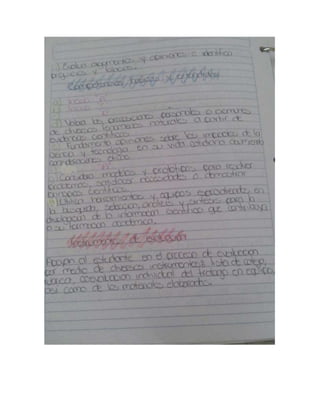 ) Evalua argumentos y opiniones e identifica
prejuicios y falacias.
Competencias
) Valora las preconcepciones personales o comunes
de diversos fenomenos naturales a partir de
evidencias científicas.
) Fundamenta opiniones sobre los impactos de la
ciencia y tecnología en su vida cotidiana asumiendo
consideraciones éticas.
) Construlle modelos y prototipos para resolver
problemas, satisfacer necesidades o demostrar
principios científicos.
Utiliza herramientas y equipos especializados en
la busqueda, seleccion, analisis y sintesis para la
divulgacion de la informacion cientifica que contribuya
a su formacion academica.
Instrumentos de evaluacion
Apoyan al estudiante en el proceso de evaluacion
por medio de diversos instrumentos: lista de cotejo,
rubrica, coevaluacion individual del trabajo en equipo,
asi como de los materiales elaborados.